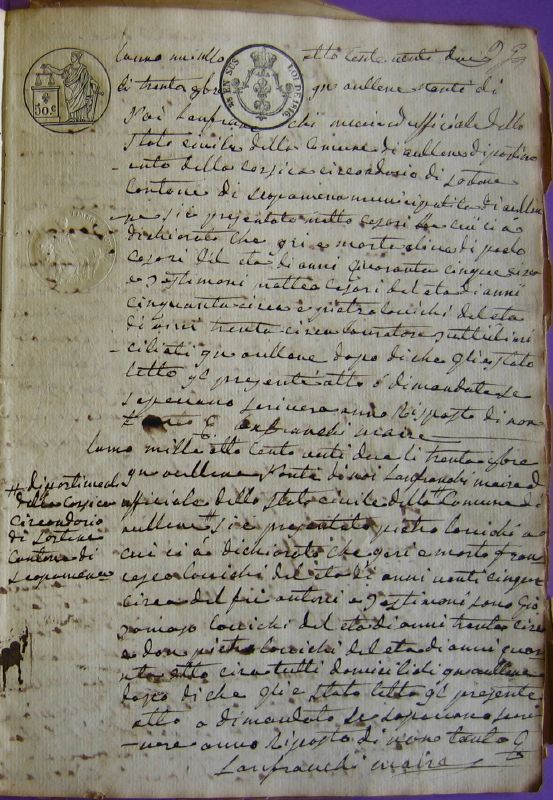 50 c
lanno mille otto cento venti due
li trenta 9bre in aullene avante di
Noi Lanfranchi maire ed uffiziale dello
stato civile della Comune di aullene dipartim
ento della corsica circondario di Sartene
Cantone di Scopamena municipalita di aullen
ne si è presentato Cesari
dichiarato che eri e morte di paolo
Cesari del eta di anni Cinquanta cinque circa
e testimoni matteo Cesari del eta di anni
cinquanta circa e pietro locichi del eta
di anni trenta circa tutti domi
ciliati in aullene dopo di che gli e stato
letto il presente atto e dimandato se
sapevano scrivere anno Risposto di non
Lanfranchi maire
lanno mille otto cento venti due li trenta 9bre
in aullene avante di noi Lanfranchi maire ed
uffiziale dello stato civile della Comune di
aullene # si e presentato pietro locichi
cui ci a dichiarato che geri e morto fran
cesco locichi del eta di anni venti cinque
circa del fu antonio e testimoni sono Gio
tomaso locichi del eta di anni trenta circa
e don pietro locichi del eta di anni quar
anta otto circa tutti domiciliati in aullene
dopo di che gli e stato letto il presente
atto a dimandato se sapevano scri
vere anno Risposto di none
Lanfranchi maire
# dipartimento
della Corsica
Circondario
di Sartene
Cantone di
Scopamena